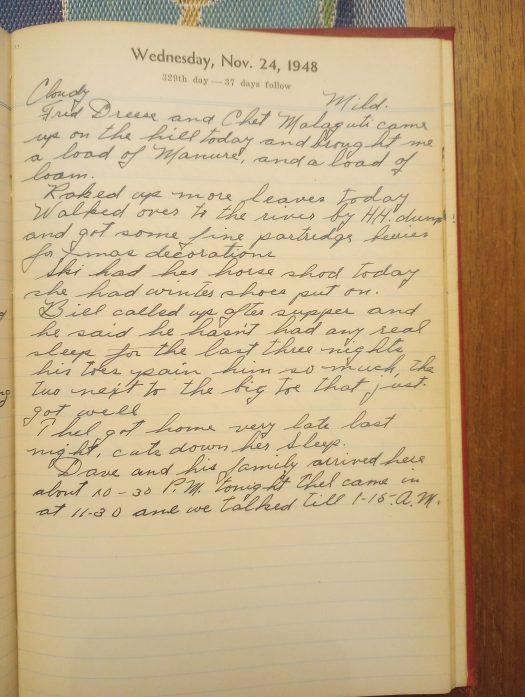 Wednesday, Nov. 24, 1948
329th day — 37 days follow
Cloudy Mild.
Fred Dreese and Chet Malaguti came
up on the hill today and brought me
a load of Manure, and a load of
loam.
Raked up more leaves today
Walked over to the river by H.H. dump
and got some fine partridge beries
for Xmas decorations
Ski had her horse shod today
she had winter shoes put on.
Bill called up after supper and
he said he hasn't had any real
sleep for the last three nights,
his toes pain him so much, the
two next to the big toe that just
got well
Thel got home very late last
night, cuts down her sleep.
Dave and his family arrived here
about 10-30 P.M. tonight Thel came in
at 11-30 and we talked till 1-15-A.M.